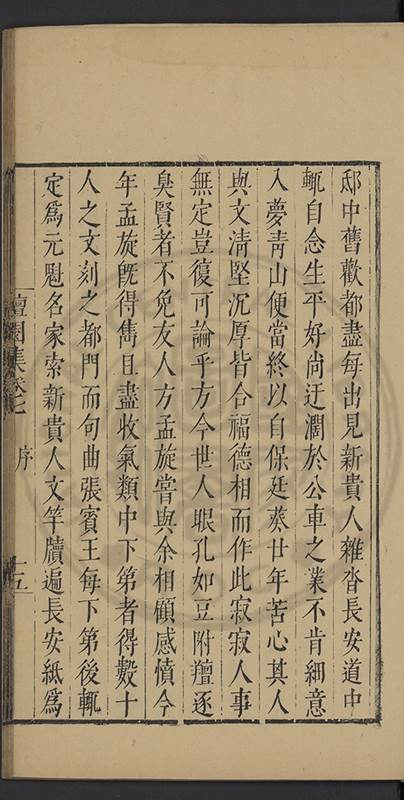 邸中舊歡都盡每出見新貴人雜沓長安道中
輒自念生平好尚迂濶於公車之業不肯細意
入夢青山便當終以自保廷蔡廿年苦心其人
與文清堅沉厚皆合福德相而作此寂寂人事
無定豈復可論乎方今世人眼孔如豆附羶逐
臭賢者不免友人方孟旋嘗與余相顧感憤今
年孟旋旣得雋且盡收氣類中下第者得數十
人之文刻之都門而句曲張賓王每下第後輒
定爲元魁名家索新貴人文竿牘遍長安紙爲
序
十五